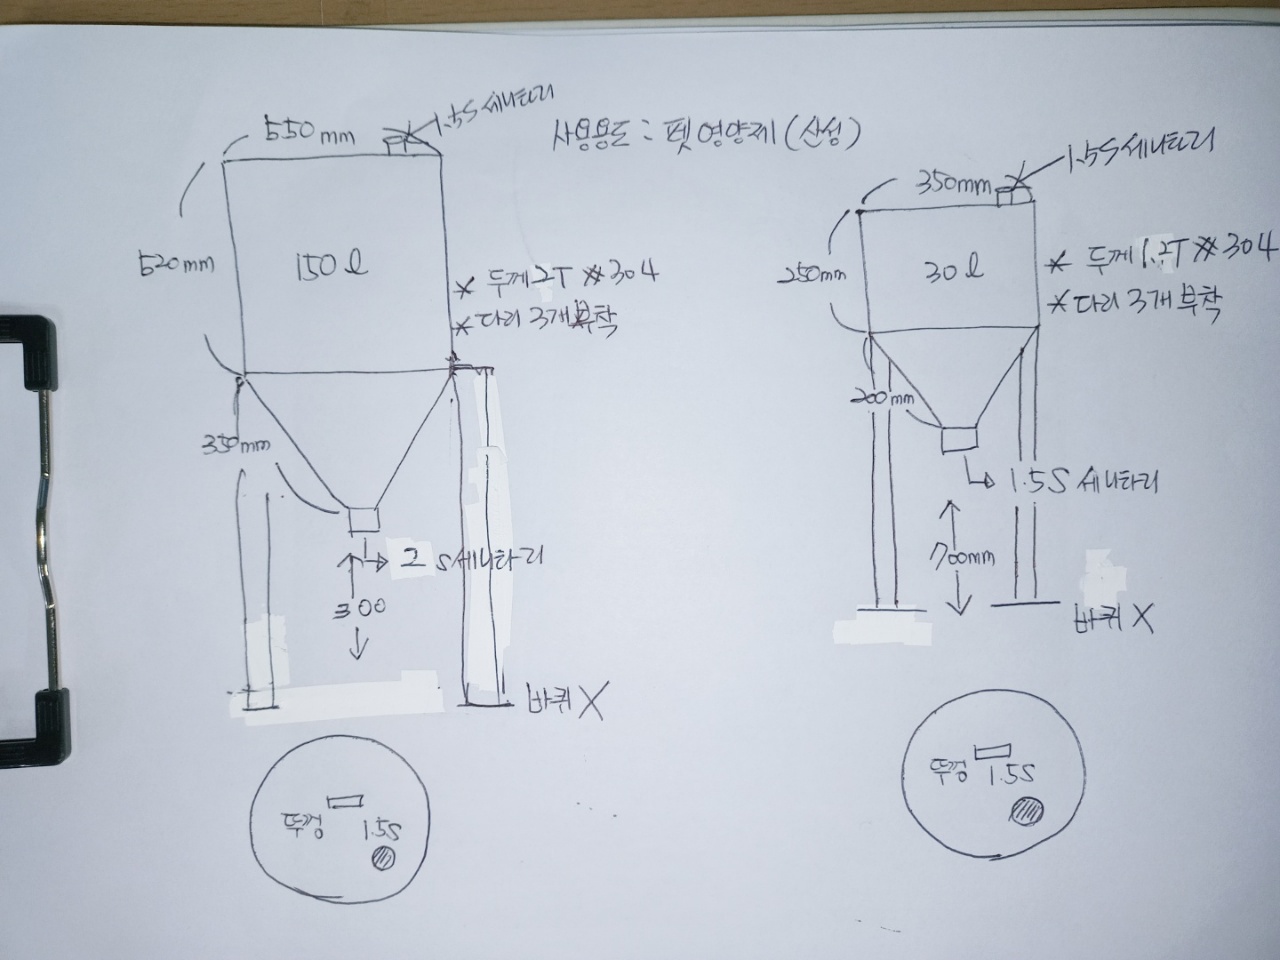 550mm
1.5S 세니타리
사용용도 : 펫 영양제 (산성)
520mm
150ℓ
* 두께 2T #304
* 다리 3개 부착
350mm
2 S 세니타리
300
바퀴 X
뚜껑
1.5S
350mm
1.5S 세니타리
250mm
30ℓ
* 두께 1.2T #304
* 다리 3개 부착
200mm
1.5S 세니타리
700mm
바퀴 X
뚜껑
1.5S